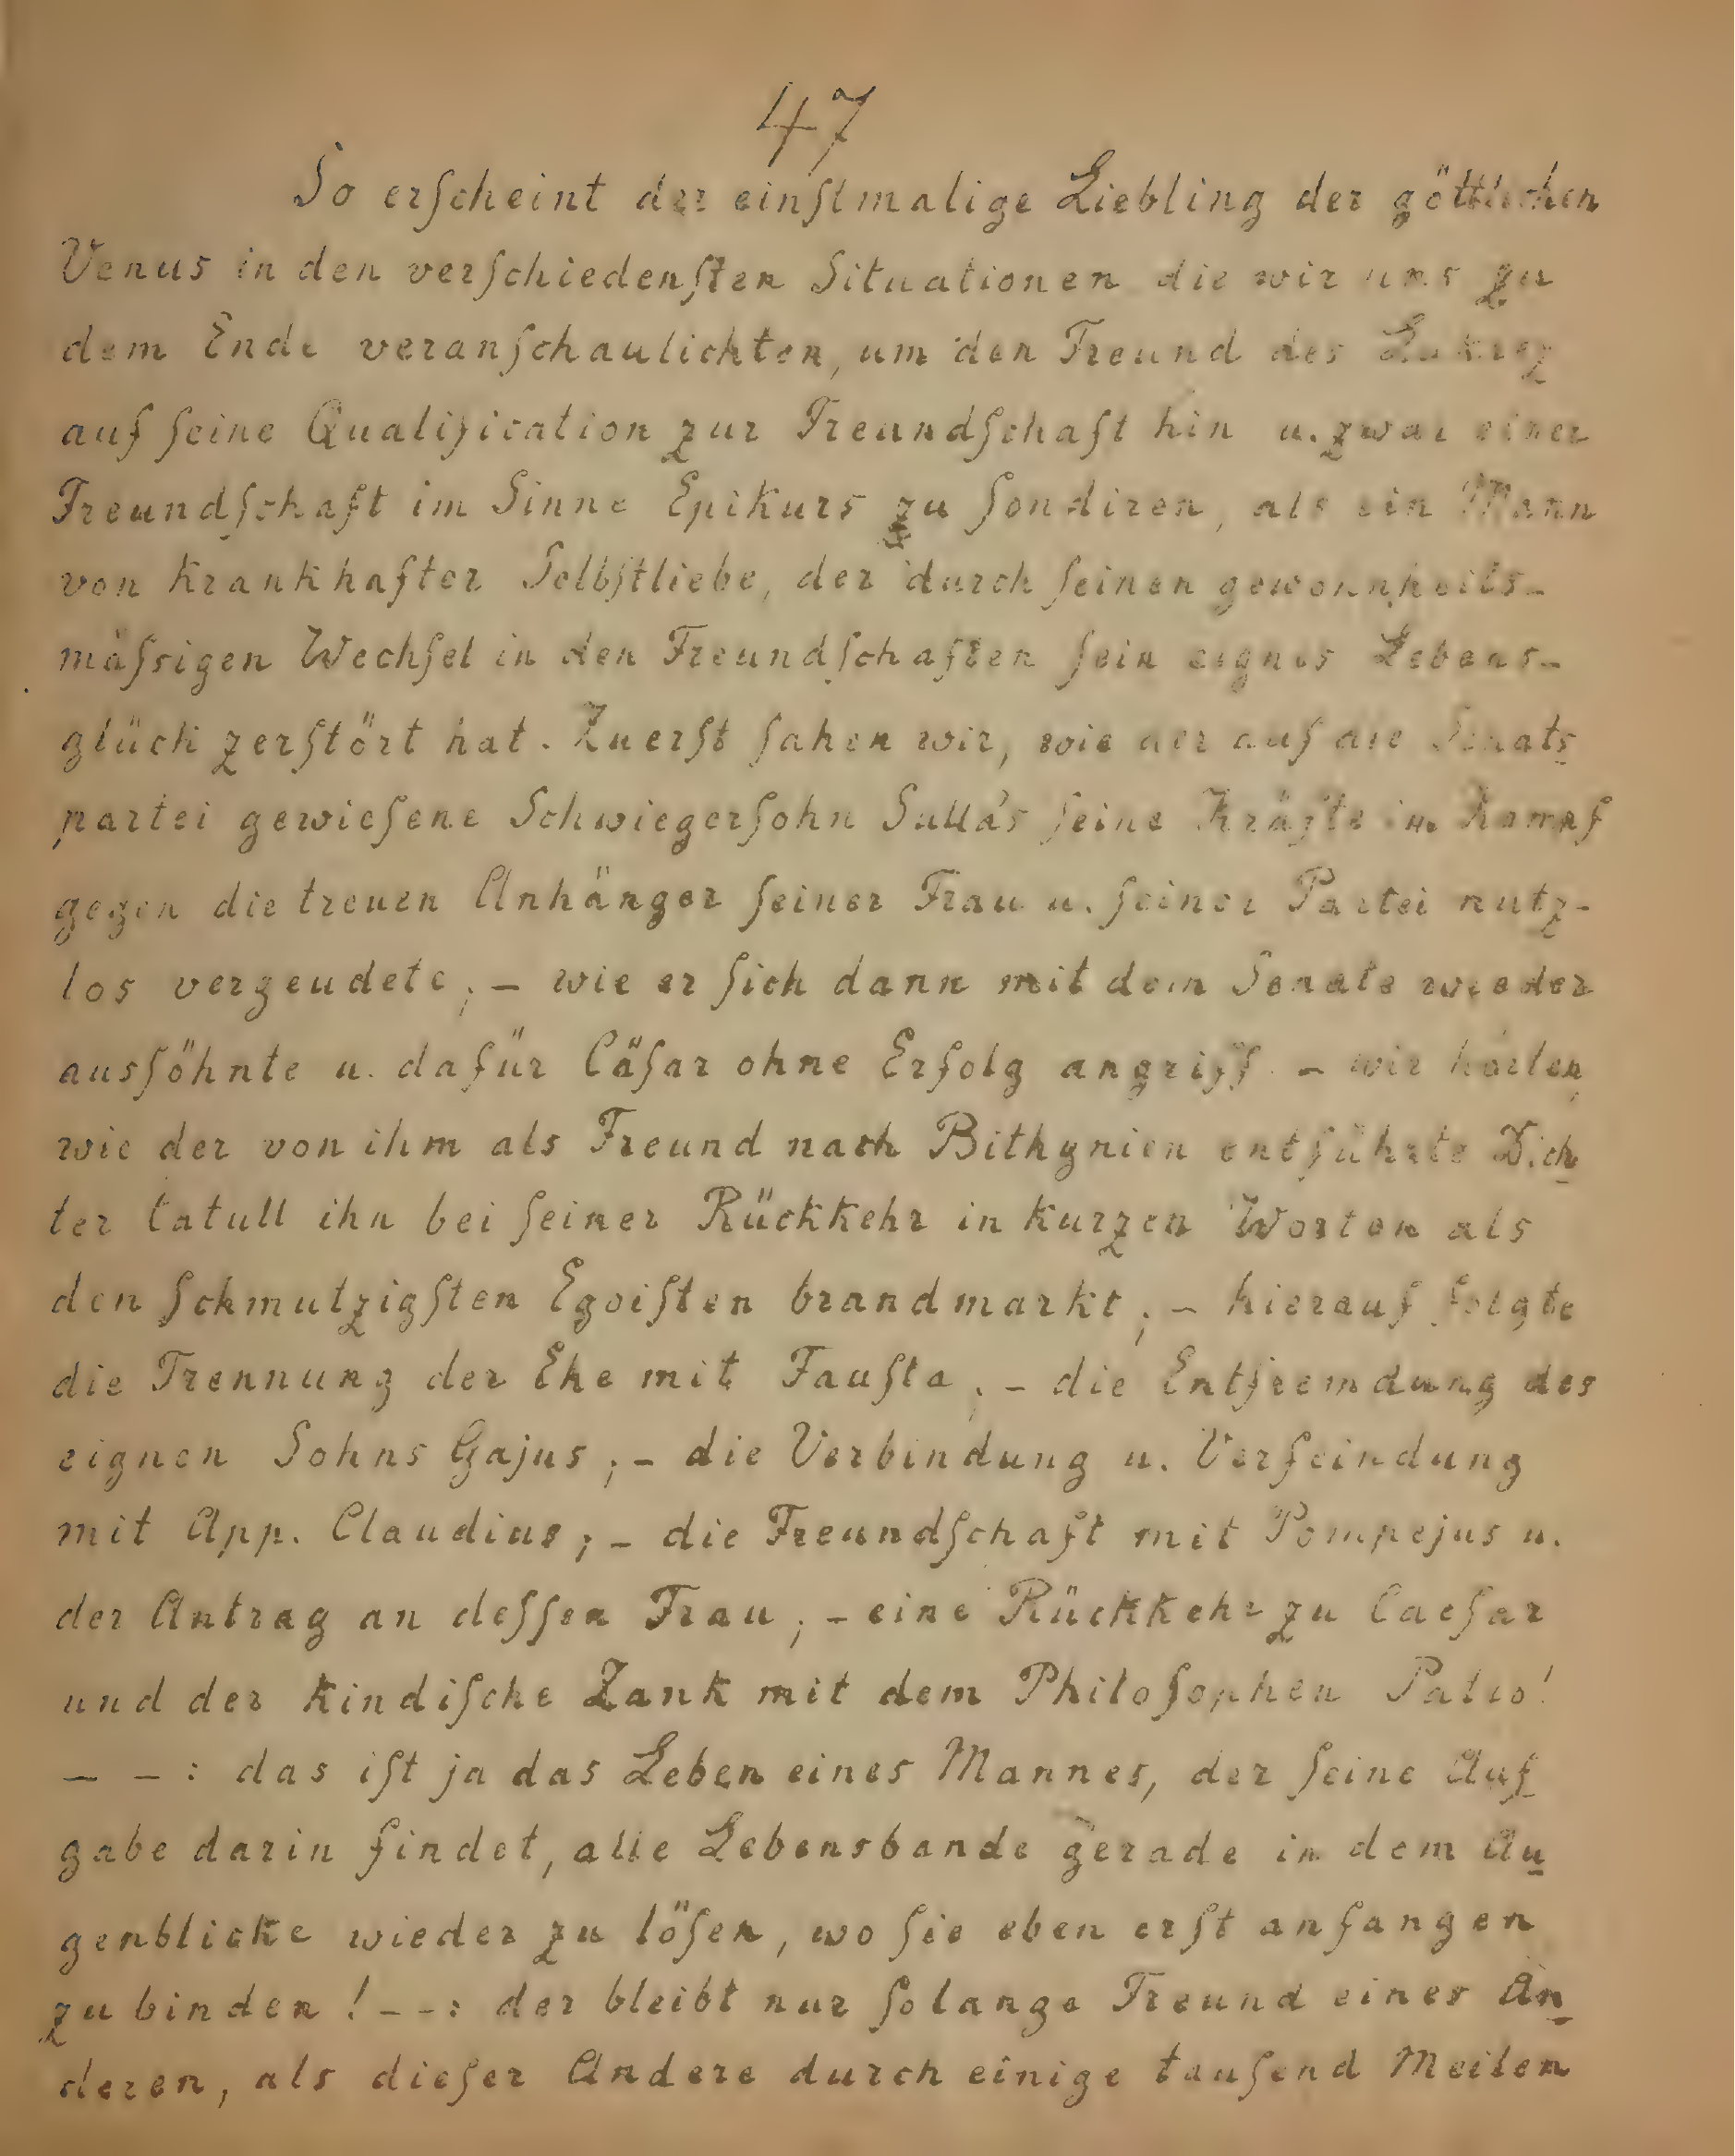 47
So erſcheint der einſtmalige Liebling der göttlichen
Venus in den verſchiedenſten Situationen die wir uns zu
dem Ende veranſchaulichten, um den Freund des Lukrez
auf ſeine Qualification zur Freundſchaft hin u. zwar einer
Freundſchaft im Sinne Epikurs zu ſondiren, als ein Mann
von krankhafter Selbſtliebe, der durch ſeinen gewonnheits-
mäſsigen Wechſel in den Freundſchaften ſein eignes Lebens-
glück zerſtört hat. Zuerſt ſahen wir, wie der auf die Senats
partei gewieſene Schwiegerſohn Sulla's ſeine Kräfte im Kampf
gegen die treuen Anhänger ſeiner Frau u. ſeiner Partei nutz-
los vergeudete; – wie er ſich dann mit dem Senate wieder
ausſöhnte u. dafür Cäſar ohne Erfolg angriff – wir hörten
wie der von ihm als Freund nach Bithynien entführte Dich
ter Catull ihn bei ſeiner Rückkehr in kurzen Worten als
den ſchmutzigſten Egoiſten brandmarkt; – hierauf folgte
die Trennung der Ehe mit Fauſta; – die Entfremdung des
eignen Sohns Gajus; – die Verbindung u. Verfeindung
mit App. Claudius; – die Freundſchaft mit Pompejus u.
der Antrag an deſſen Frau; – eine Rückkehr zu Caeſar
und der kindiſche Zank mit dem Philoſophen Patro!
– – : das iſt ja das Leben eines Mannes, der ſeine Auf
gabe darin findet, alle Lebensbande gerade in dem Au
genblicke wieder zu löſen, wo ſie eben erſt anfangen
zu binden! – – : der bleibt nur ſolange Freund eines An
deren, als dieſer Andere durch einige tauſend Meilen